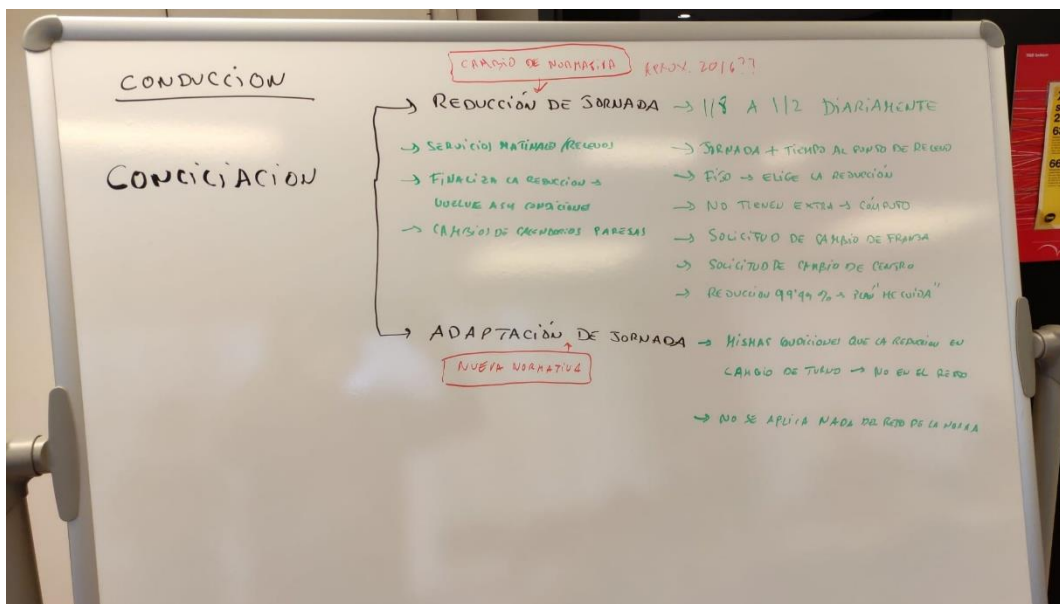 CONDUCCION
CAMBIO DE NORMATIVA
APROX. 2016??
REDUCCIÓN DE JORNADA → 1/8 A 1/2 DIARIAMENTE
→ SERVICIOS MATINALES/RELEVOS
→ FINALIZA LA REDUCCION →
VUELVE A SU CONDICIONES
→ CAMBIOS DE CALENDARIOS PAREJAS
→ JORNADA + TIEMPO AL PUNTO DE RELEVO
→ FIJO → ELIGE LA REDUCCIÓN
→ NO TIENEN EXTRA → CÓMPUTO
→ SOLICITUD DE CAMBIO DE FRANJA
→ SOLICITUD DE CAMBIO DE CENTRO
→ REDUCCIÓN 99'99 % → PLAN "ME CUIDA"
CONCILIACION
ADAPTACIÓN DE JORNADA → MISMAS CONDICIONES QUE LA REDUCCIÓN EN
CAMBIO DE TURNO → NO EN EL RESTO
NUEVA NORMATIVA
→ NO SE APLICA NADA DEL RESTO DE LA NORMA